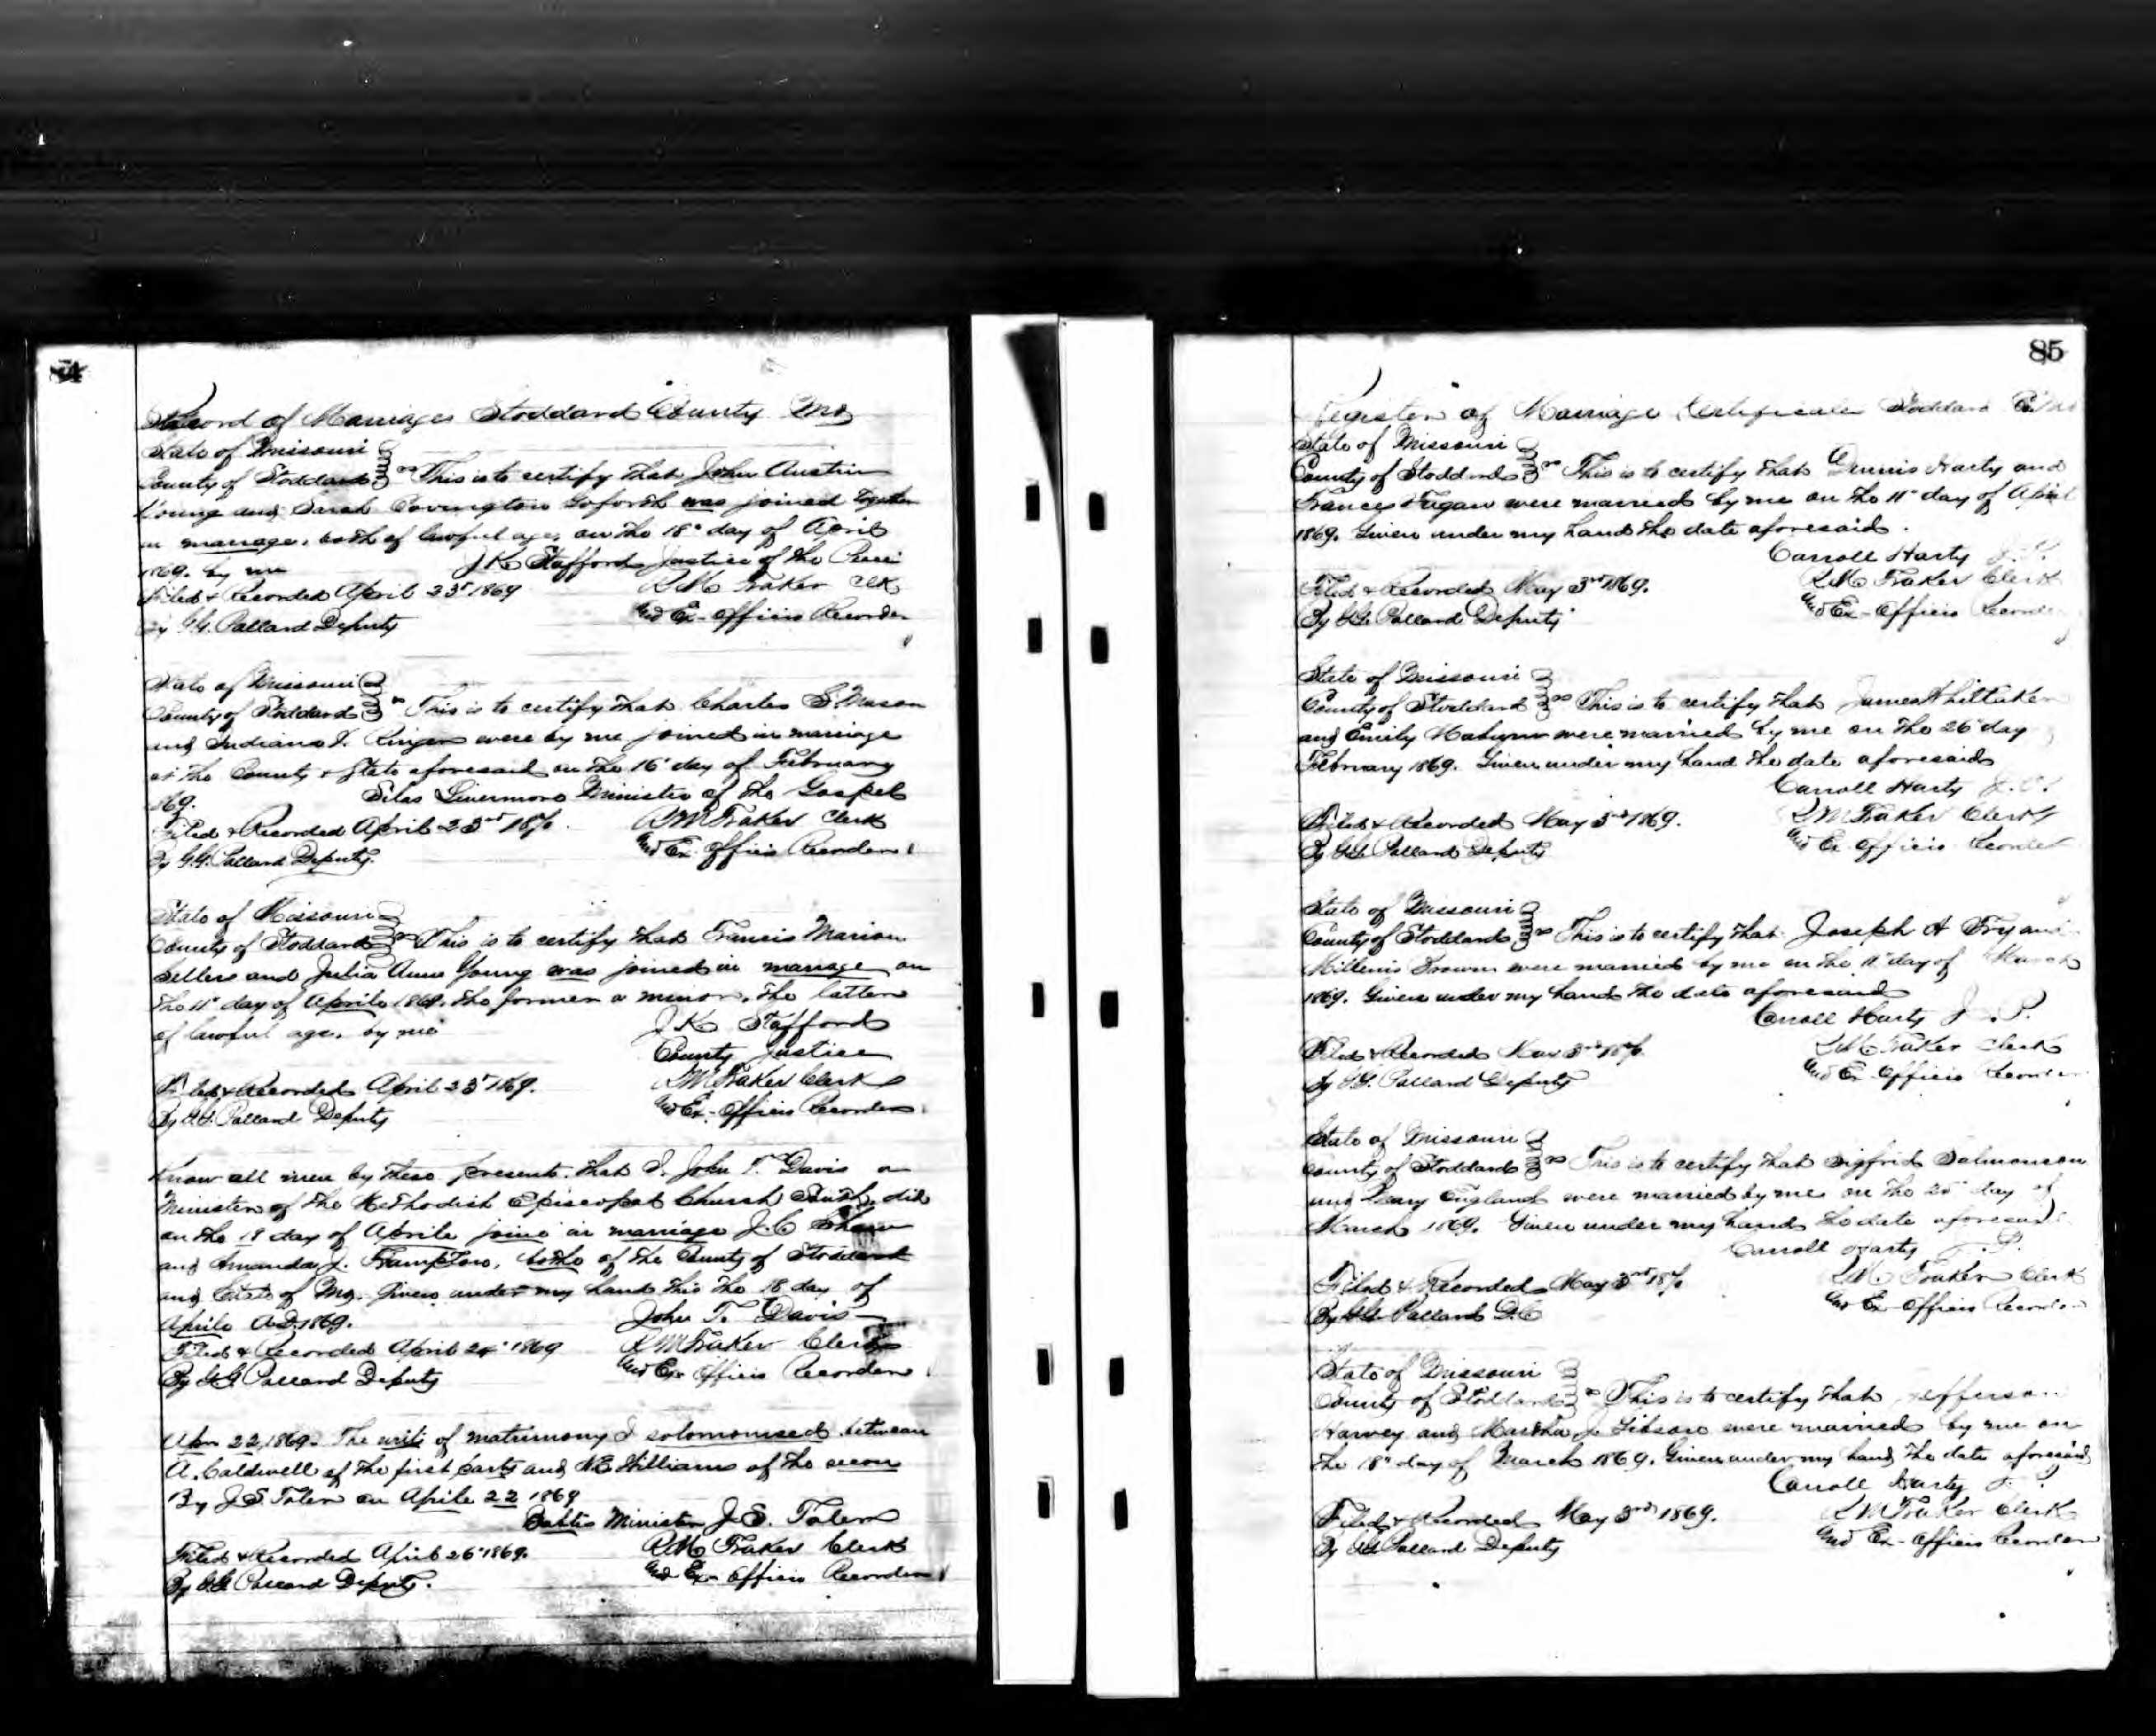 84
Record of Marriages Stoddard County Mo
State of Missouri
County of Stoddard ss This is to certify that John Austin
Young and Sarah Covington Goforth was joined together
in marriage, both of lawful age, on the 18" day of April
1869. by me J K Stafford Justice of the Peace
Filed & Recorded April 23d 1869 R M Fraker Clk
By G.G. Pollard Deputy And Ex-officio Recorder
State of Missouri
County of Stoddard ss This is to certify that Charles S. Mason
and Indiana J. Ringer were by me joined in marriage
at the County & State aforesaid on the 16" day of February
1869. Silas Livermore Minister of the Gospel
Filed & Recorded April 23rd 1869. R M Fraker Clerk
By G.G. Pollard Deputy. And Ex officio Recorder
State of Missouri
County of Stoddard ss This is to certify that Francis Marion
Sellers and Julia Ann Young was joined in marriage on
the 11" day of Aprile 1869. the former a minor, the latter
of lawful age, by me J K Stafford
County Justice
Filed & Recorded April 23d 1869. R M Fraker Clerk
By G.G. Pollard Deputy And Ex-officio Recorder.
Know all men by these presents that I, John T. Davis a
Minister of the Methodist Episcopal Church South, did
on the 18 day of Aprile joine in marriage J. C.
and Amanda J. Frampton, bothe of the County of Stoddard
and State of Mo. Given under my hand this the 18 day of
Aprile A.D. 1869. John T. Davis
Filed & Recorded April 24" 1869 R M Fraker Clerk
By G G Pollard Deputy And Ex officio Recorder
Apr 22, 1869. The writs of matrimony I solomonised between
A. Caldwell of the first party and Williams of the secon
By J. S. Toler on Aprile 22 1869
Babtis Minister J. S. Toler
Filed & Recorded April 26" 1869. R M Fraker Clerk
By G G Pollard Deputy. And Ex officio Recorder
85
Register of Marriage Certificates Stoddard Co Mo
State of Missouri
County of Stoddard ss This is to certify that Dennis Harty and
Frances Fagan were married by me on the 11" day of April
1869. Given under my hand the date aforesaid.
Carroll Harty J. P.
Filed & Recorded May 3rd 1869. R M Fraker Clerk
By G G Pollard Deputy And Ex-officio Recorder
State of Missouri
County of Stoddard ss This is to certify that James Whittaker
and Emily were married by me on the 26" day
February 1869. Given under my hand the date aforesaid
Carroll Harty J. P.
Filed & Recorded May 3rd 1869. R M Fraker Clerk
By G G Pollard Deputy And Ex officio Recorder
State of Missouri
County of Stoddard ss This is to certify that Joseph A Fry and
Brown were married by me on the 11" day of March
1869. Given under my hand the date aforesaid
Carroll Harty J. P.
Filed & Recorded May 3rd 1869. R M Fraker Clerk
By G.G. Pollard Deputy And Ex officio Recorder
State of Missouri
County of Stoddard ss This is to certify that Sigfrid Salmonson
and Mary England were married by me on the 25" day of
March 1869. Given under my hand the date aforesaid
Carroll Harty J. P.
Filed & Recorded May 3rd 1869. R M Fraker Clerk
By G G Pollard D. C And Ex officio Recorder
State of Missouri
County of Stoddard ss This is to certify that Jefferson
Harvey and Martha J. Gibson were married by me on
the 18" day of March 1869. Given under my hand the date aforesaid
Carroll Harty J. P.
Filed & Recorded May 3rd 1869. R M Fraker Clerk
By G G Pollard Deputy And Ex-officio Recorder